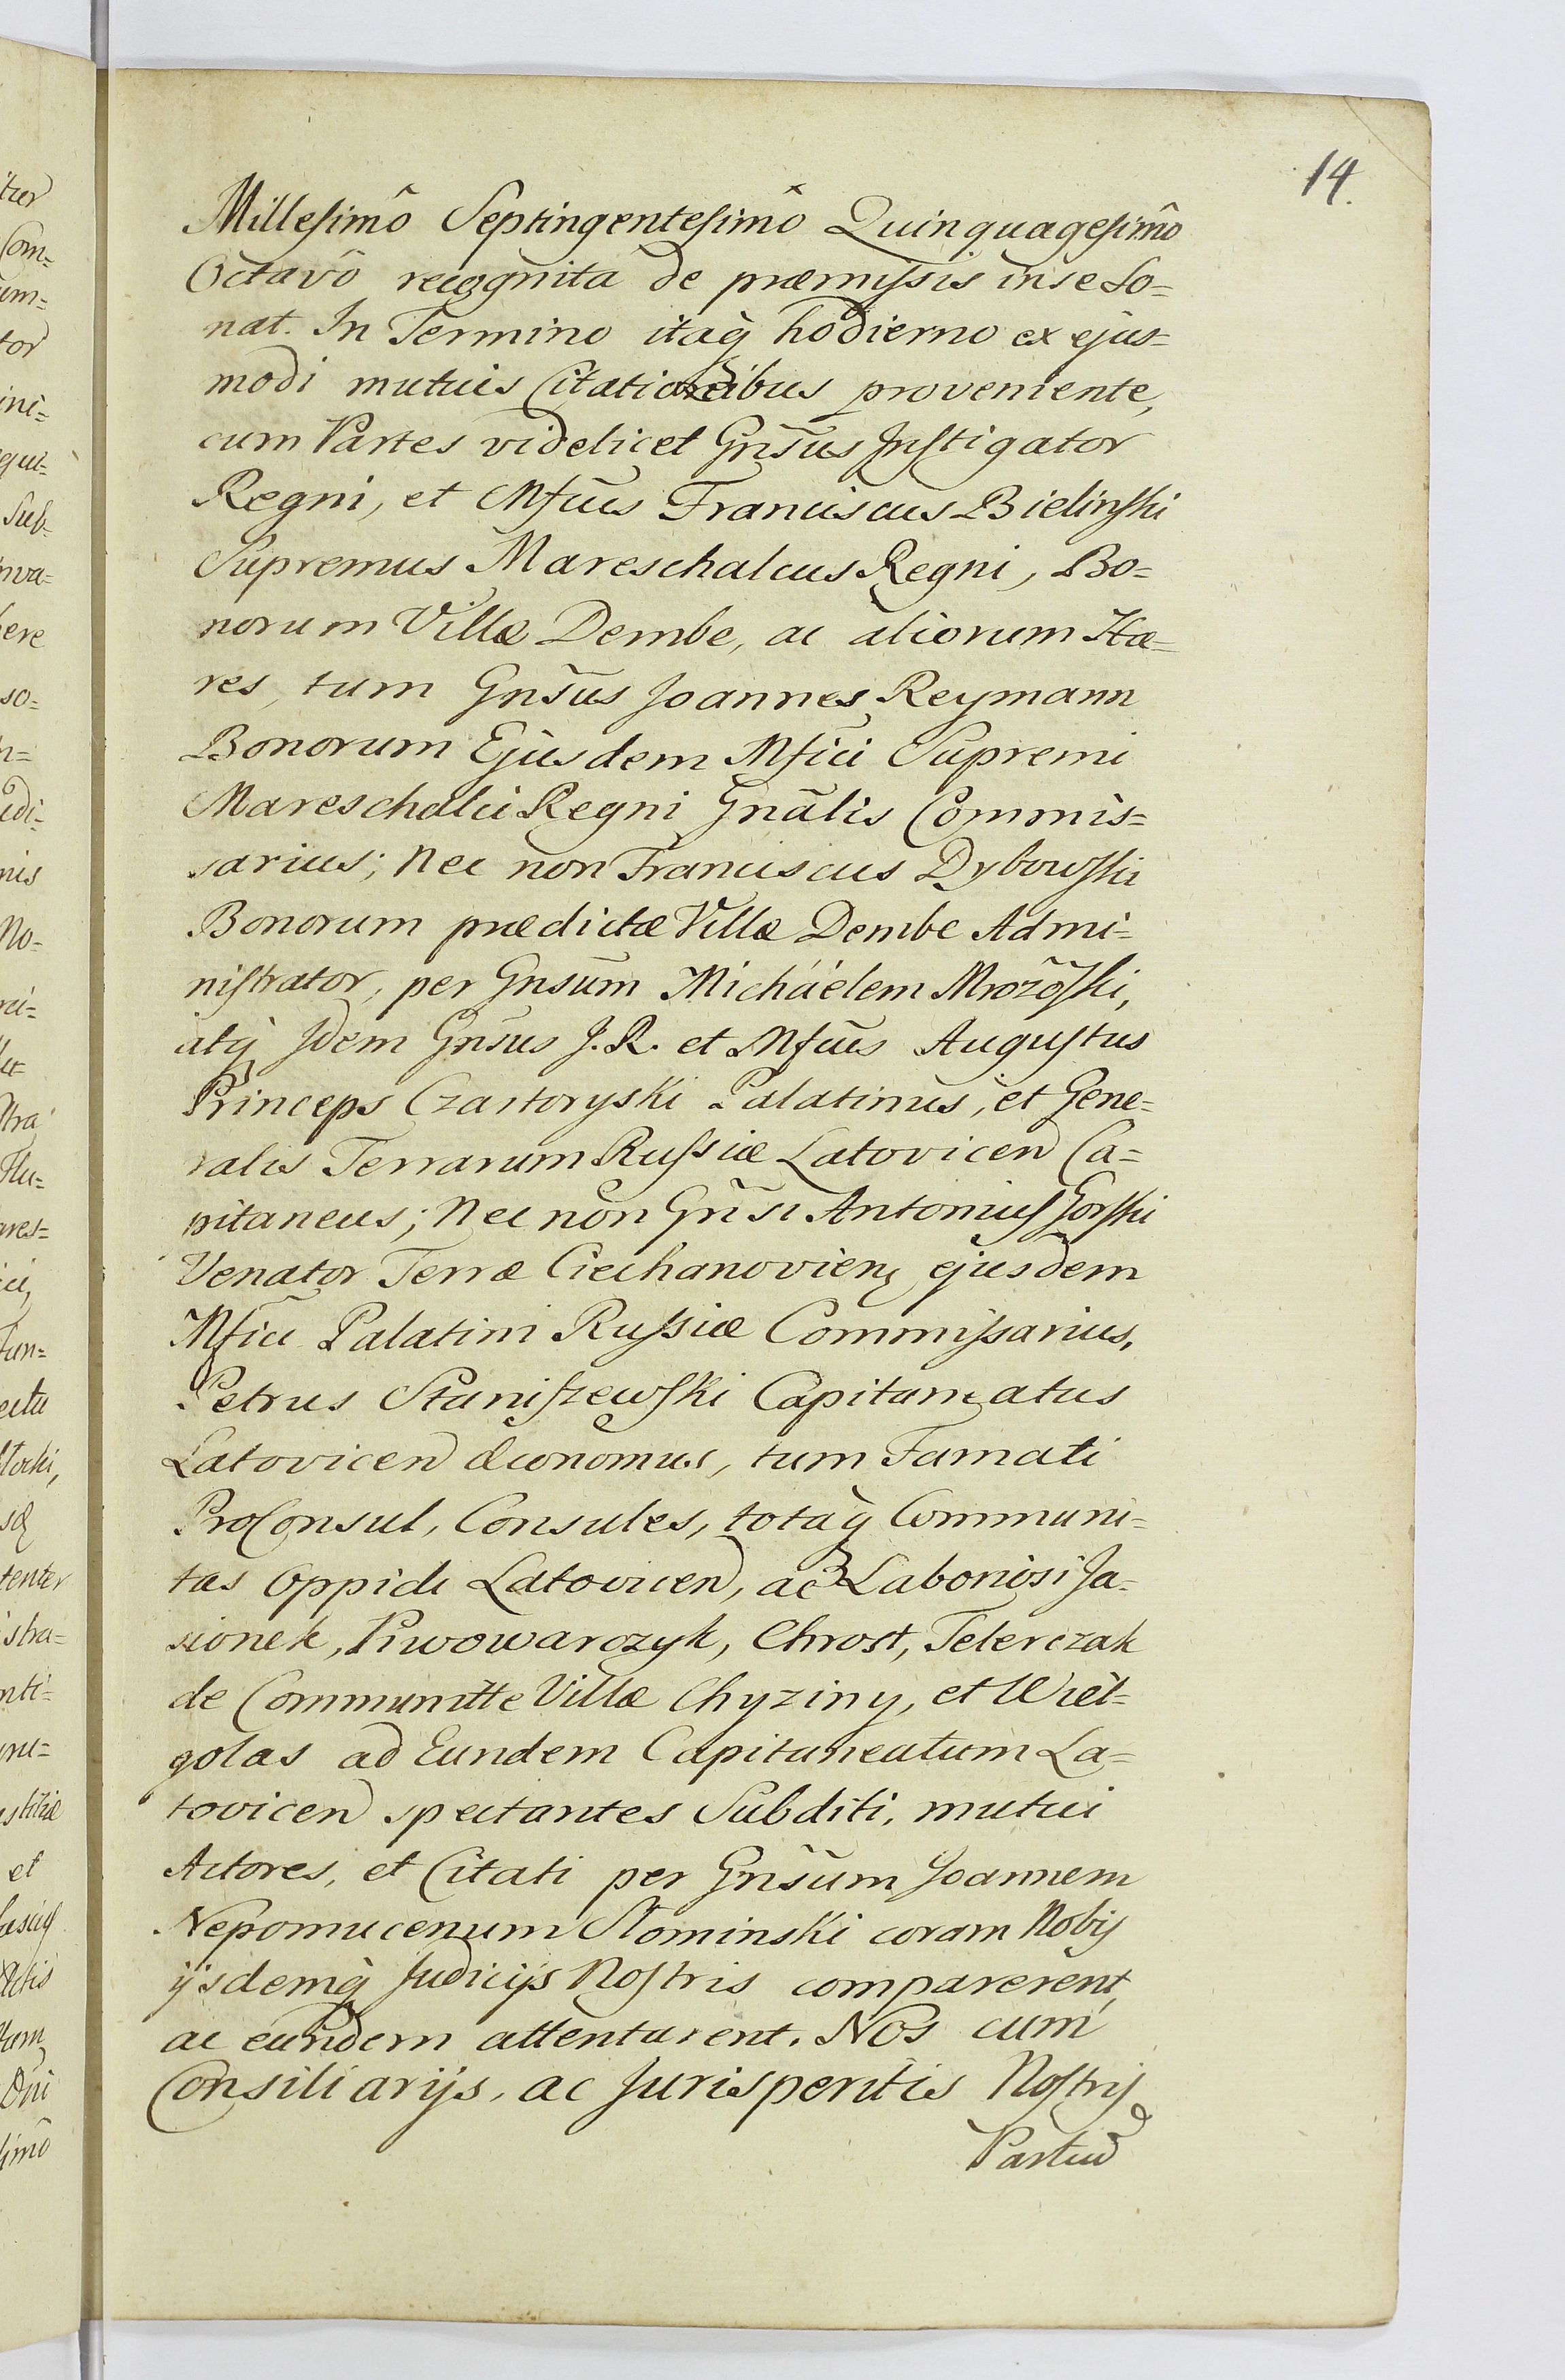 14.
Millesimô Septingentesimô Quinquagesimô
Octavô recognita de præmissis in se so=
nat. In Termino itaq̀ hodierno ex ejus=
modi mutuis Citationibus proveniente,
cum Partes videlicet Gnsus Instigator
Regni, et Mfcus Franciscus Bielinski
Supremus Mareschalcus Regni, Bo=
norum Villæ Dembe, ac aliorum Hæ=
res, tum Gnsus Joannes Reymann
Bonorum Ejusdem Mfici Supremi
Mareschalci Regni Gnalis Commis=
sarius; Nec non Franciscus Dybowski
Bonorum prædictæ Villæ Dembe Admi=
nistrator, per Gnsum Michàélem Mrozoski,
atq̀ Idem Gnsus J. R. et Mfcus Augustus
Princeps Czartoryski Palatinus, et Gene=
ralis Terrarum Russiæ Latovicen Ca=
pitaneus; Nec non Gnsi Antonius Gorski
Venator Terræ Ciechanovien ejusdem
Mfici Palatini Russiæ Commissarius,
Petrus Staniszewski Capitaneatus
Latovicen Œconomus, tum Famati
ProConsul, Consules, totaq̀ Communi=
tas Oppidi Latovicen, ac Laboriosi Ja=
sionek, Piwowarczyk, Chrost, Telerczak
de Communitte Villæ Chyziny, et Wiel=
golas ad Eundem Capitaneatum La=
tovicen spectantes Subditi, mutui
Actores, et Citati per Gnsum Joannem
Nepomucenum Slominski coram Nobis
ijsdemq̀ Judicijs Nostris comparerent,
ac eundem attentarent. Nos cum
Consiliarijs, ac Jurisperitis Nostris